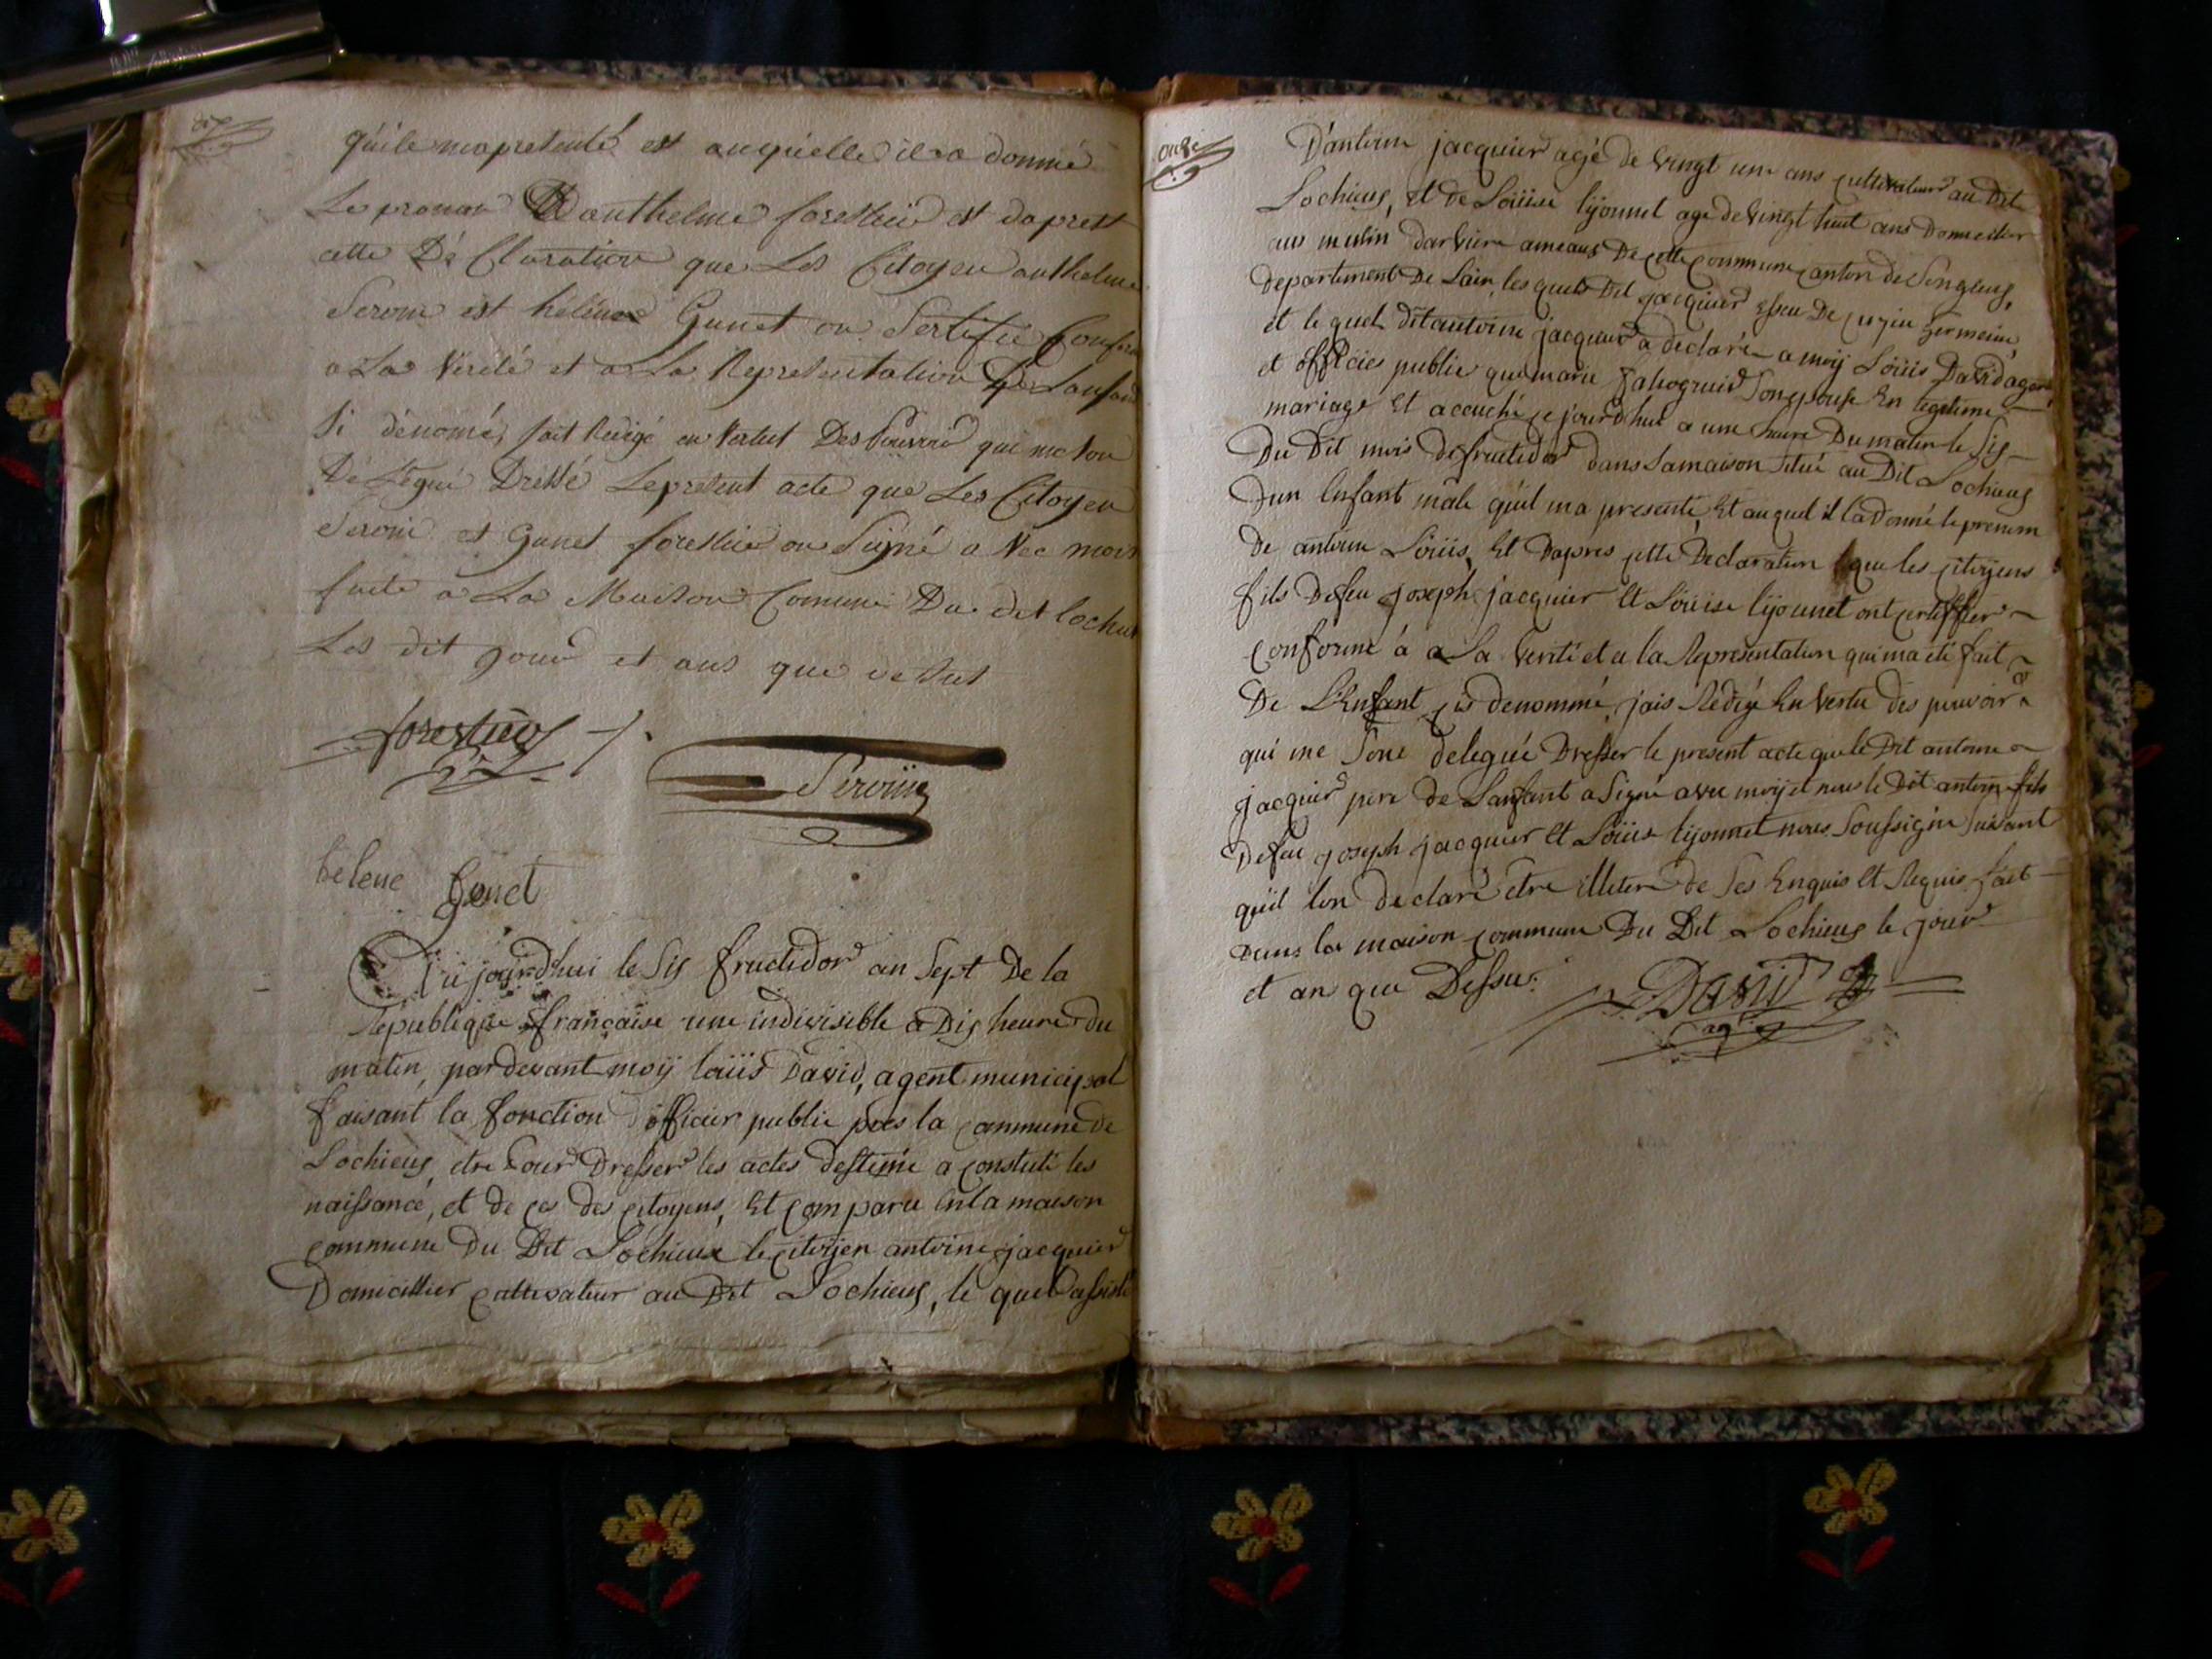 dix
qu'ile ma presenté est auquelle il a donné
Le prenom Danthelme forestier et daprest
cette Dé Claration que Les Citoyen anthelme
Seroin est hélène Gunet on Sertifié Confor
a La Vérité et a La Representation De Lanfan
Si dénomé, fait Redigé en Vertut Des Pouvoir qui me son
Délégué Dressé Le present acte que Les Citoyen
Seroin et Gunet forestier on Signé a Vec mois
faite a La Maison Comune Du dit lochieu
Les dit jour et ans que desus
forestier
Seroin
helene genet
Aujourd'hui le Sis fructidor an Sept De la
Republique française une indivisible a Dis heure du
matin, pardevant moÿ loüis David, agent municipal
faisant la fonction officier public pres la commune de
Lochieus, etre Pour Dresser les actes destinné a constuté les
naissance, et de ces des citoyens, Et comparu En la maison
commune Du Dit Lochieux le citoÿen antoine jacquier
Domicillier cultivateur au Dit Lochieus, le quel assisté
onze
D'antoine jacquier agé de Vingt un ans cultivateur au Dit
Lochieus, et de Loüise lÿonnet age de Vingt huit ans Domecilier
aus mulin darviere ameaus De cette commune canton de Songieus,
Departement De Lain, les quels Dit jacquier Esseu De cuzin Germain,
et le quel dit antoine jacquier a declaré a moÿ Loüis David agent
et officies public que marie Son epouse En legitime
mariage Et acouché ce jourd'hui a une heure Du matin le Sis
Du Dit mois de fructidor dans Sa maison Situé au Dit Lochieus
Dun Enfant mâle qu'il ma presenté, Et au quel il la Donné le prenom
De antoine Loüis, Et Dapres cette Declaration que les citoyens
fils Defeu joseph jacquier Et Loüise lÿonnet ont certiffier
conforme á a La Verité et a la Representation qui ma été fait
De L'Enfant cis denommé, jais Rédigé En Vertu des pouvoir
qui me Sone delegué Dresser le present acte que le Dit antoine
jacquier pere de Lanfant a Signé avec moÿ et nous le Dit antoin fils
Defeu joseph jacquier Et Loüise lÿonnet nous Soussigné Suivant
qu'il lon declaré etre illiteré de Ses Enquis Et Requis fait
Dans la maison commune Du Dit Lochieus le jour
et an que Dessu.
David
agt